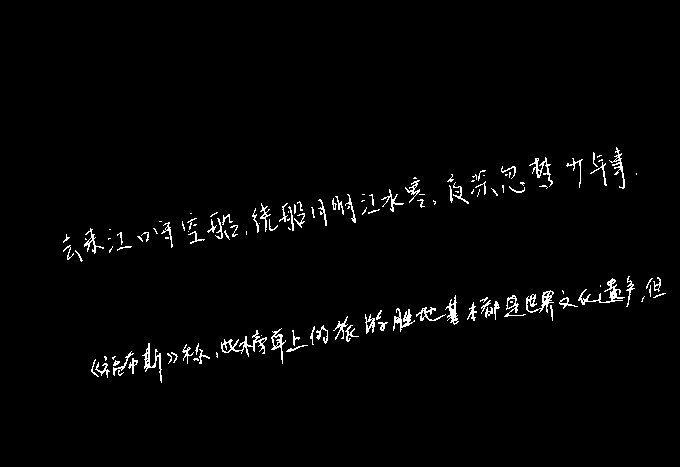 去来江口守空船，绕船月明江水寒，夜深忽梦少年事．
《福布斯》称，此榜单上的旅游胜地基本都是世界文化遗产，但